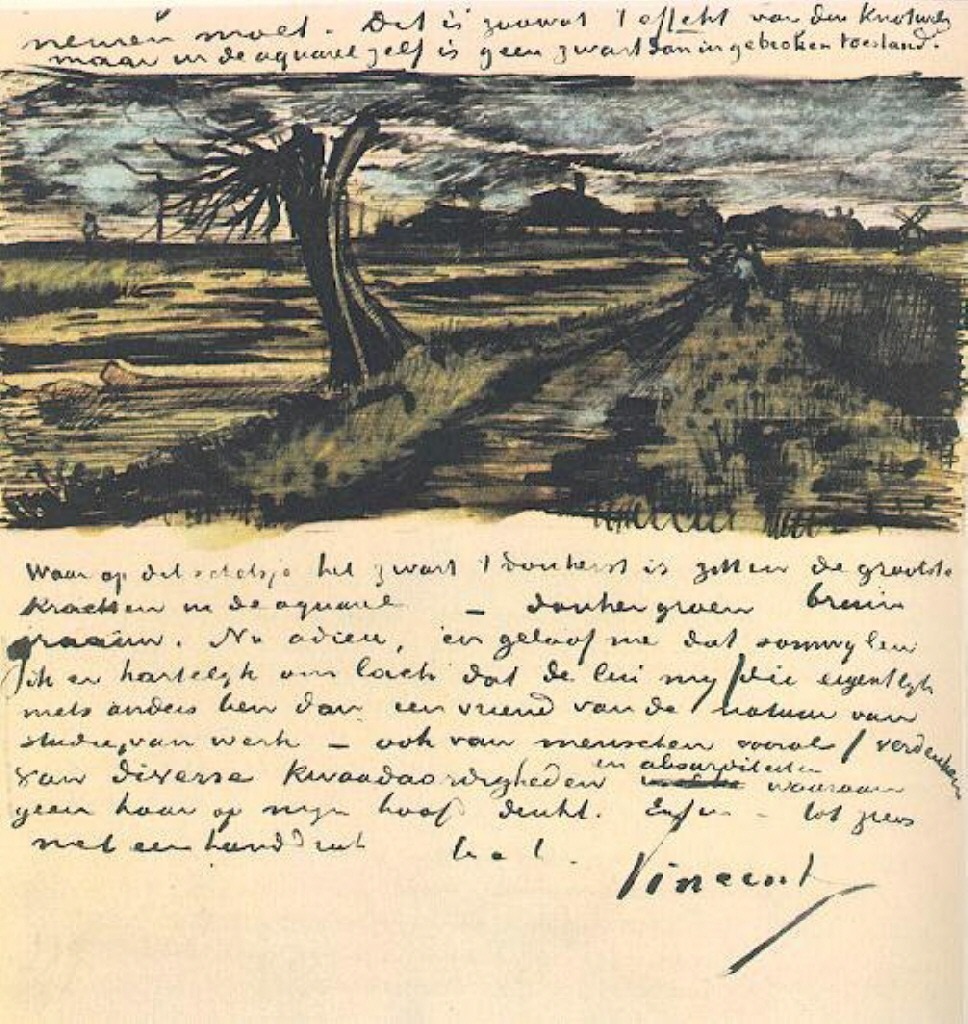 nemen moet. Dit is zoowat 't effekt van den Knotwilg
maar in de aquarel zelf is geen zwart dan in gebroken toestand.
Waar op dit schetsje het zwart 't donkerst is zitten de grootste
krachten in de aquarel — donkergroen bruin
graauw. Nu adieu, en geloof me dat somwylen
ik er hartelyk om lach dat de lui my (die eigentlyk
niets anders ben dan een vriend van de natuur van
studie, van werk — ook van menschen vooral) verdenken
van diverse kwaadaardigheden en absurditeiten waaraan
geen haar op myn hoofd denkt. Enfin — tot ziens
met een handdruk t. à t.
Vincent